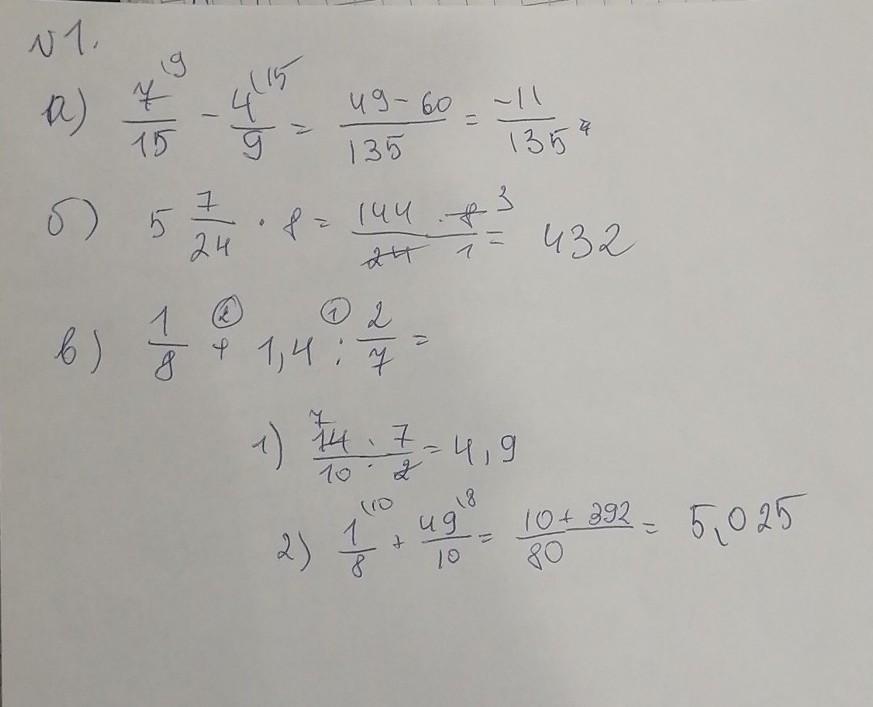 №1.
а) 7⁽⁹/15 - 4⁽¹⁵/9 = 49-60/135 = -11/135.
б) 5 7/24 · 8 = 144 · 8 3/24 1 = 432
в) 1/8 +② 1,4 :① 2/7 =
1) 7 14 · 7/10 · 2 = 4,9
2) 1⁽¹⁰/8 + 49⁽⁸/10 = 10+392/80 = 5,025